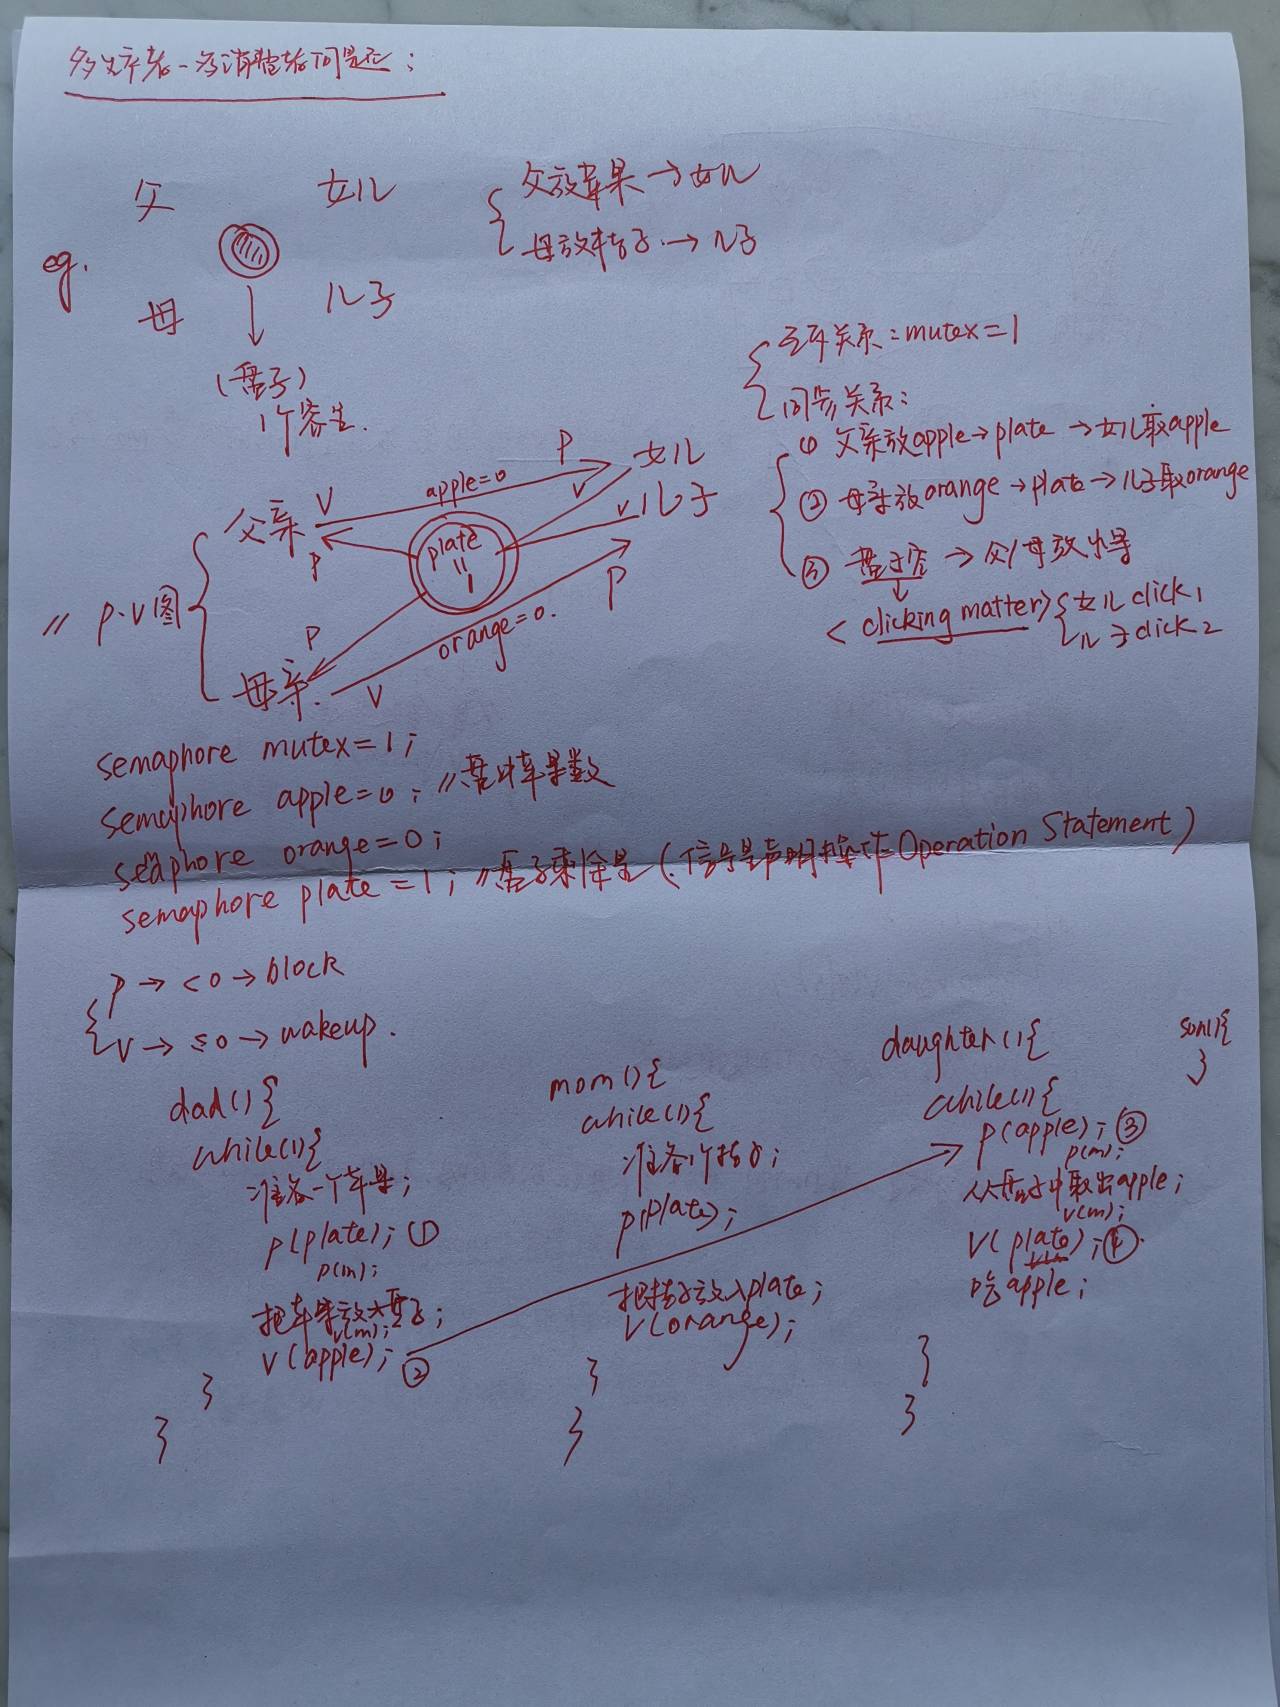 多生产者-多消费者问题:
父 女儿
eg.
母 儿子
(盘子)
1个容量.
父放苹果→女儿
母放橘子→儿子
互斥关系:mutex=1
同步关系:
① 父亲放apple→plate→女儿取apple
② 母亲放orange→plate→儿子取orange
③ 盘子空→父/母放水果
<clicking matter> 女儿 click1
儿子click2
// P.V图
父亲 V apple=0 P 女儿
P plate=1 V V 儿子
P orange=0. P
母亲. V
semaphore mutex=1;
semaphore apple=0; //盘中苹果数
seaphore orange=0;
semaphore plate=1; //盘子剩余量(信号量声明操作Operation Statement)
P→<0→block
V→≤0→wakeup.
dad(){
while(1){
准备一个苹果;
P(plate); ①
P(m);
把苹果放入盘子;
V(m);
V(apple); ②
}
}
mom(){
while(1){
准备个橘子;
P(plate);
把橘子放入plate;
V(orange);
}
}
daughter(){
while(1){
P(apple); ③
P(m);
从盘子中取出apple;
V(m);
V(plate); ④
吃apple;
}
}
son(){
}